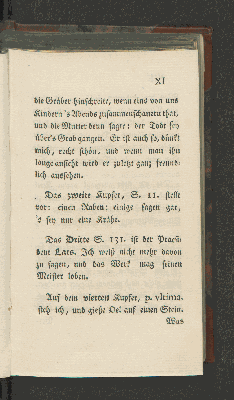 XI
die Gräber hinschreite, wenn eins von uns
Kindern's Abends zusammenschauern that,
und die Mutter denn sagte: der Todt sey
über's Grab gangen. Er ist auch so, dünkt
mich, recht schön, und wenn man ihn
lange ansieht wird er zuletzt ganz freund-
lich aussehen.
Das zweite Kupfer, S. 11. stellt
vor: einen Raben; einige sagen gar,
's sey nur eine Krähe.
Das Dritte S. 131. ist der Praesi-
dent Lars. Ich weiß nicht mehr davon
zu sagen, und das Werk mag seinen
Meister loben.
Auf dem vierten Kupfer, p. vltima.
sitz ich, und gieße Oel auf einen Stein.
Was